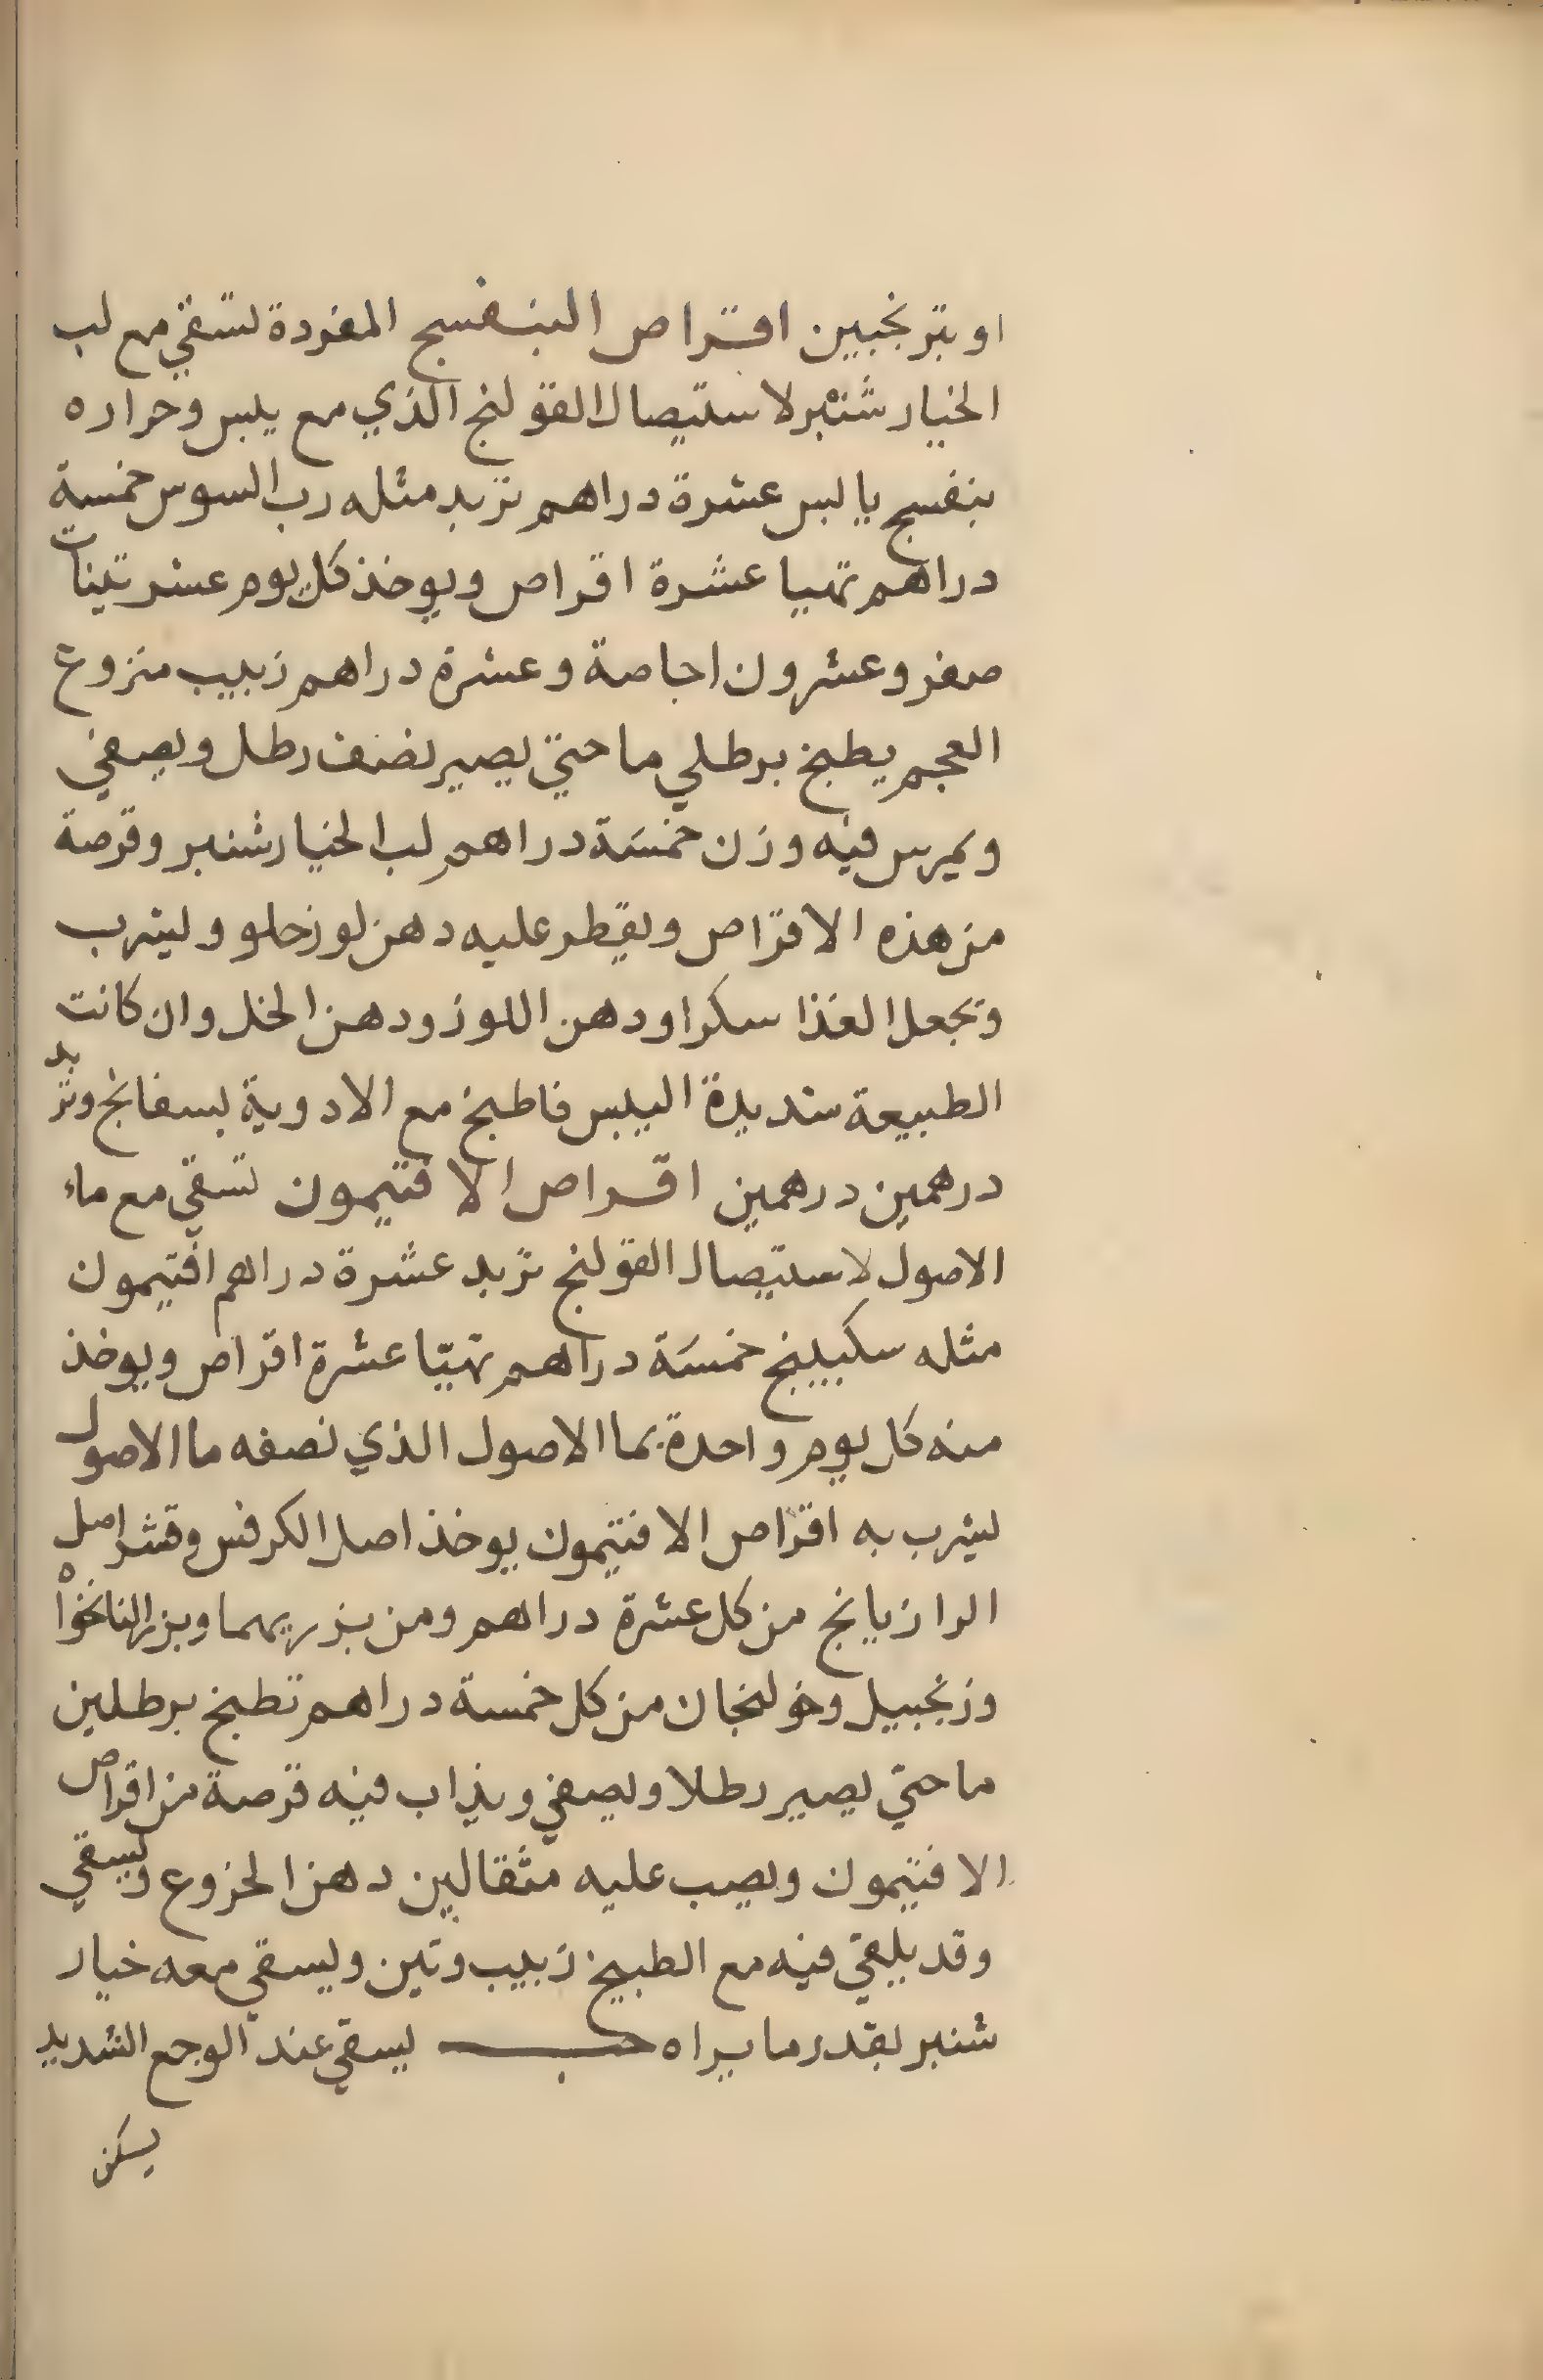 او بترنجبين اقراص البنفسج المفردة تسقي مع لب
الخيار شنبر لاستيصال القولنج الذي مع يبس وحراره
بنفسج يابس عشرة دراهم تربد مثله رب السوس خمسة
دراهم تهيا عشرة اقراص ويوخذ كل يوم عشر تينات
صفر وعشرون اجاصة وعشرة دراهم زبيب منزوع
العجم يطبخ برطلي ما حتي يصير نصف رطل ويصفي
ويمرس فيه وزن خمسة دراهم لب الخيار شنبر وقرصة
من هذه الاقراص ويقطر عليه دهن لوز حلو ويشرب
وتجعل الغذا سكرا ودهن اللوز ودهن الخل وان كانت
الطبيعة شديدة اليبس فاطبخ مع الادوية بسفانج وتربد
درهمين درهمين اقراص الافتيمون تسقي مع ماء
الاصول لاستيصال القولنج تربد عشرة دراهم افتيمون
مثله سكبينج خمسَة دراهم تهيّا عشرة اقراص ويوخذ
منه كل يوم واحدة بما الاصول الذي نصفه ما الاصول
ليشرب به اقراص الافتيمون يوخذ اصل الكرفس وقشر اصل
الرازيانج من كل عشرة دراهم ومن بزريهما وبزر النانخواه
وزنجبيل وخولنجان من كل خمسة دراهم تطبخ برطلين
ما حتي يصير رطلا ويصفي ويذاب فيه قرصة من اقراص
الافتيمون ويصب عليه مثقالين دهن الخزوع ويسقي
وقد يلقي فيه مع الطبيخ زبيب وتين ويسقي معه خيار
شنبر بقدر ما يراه حب يسقي عند الوجع الشديد
يسكن